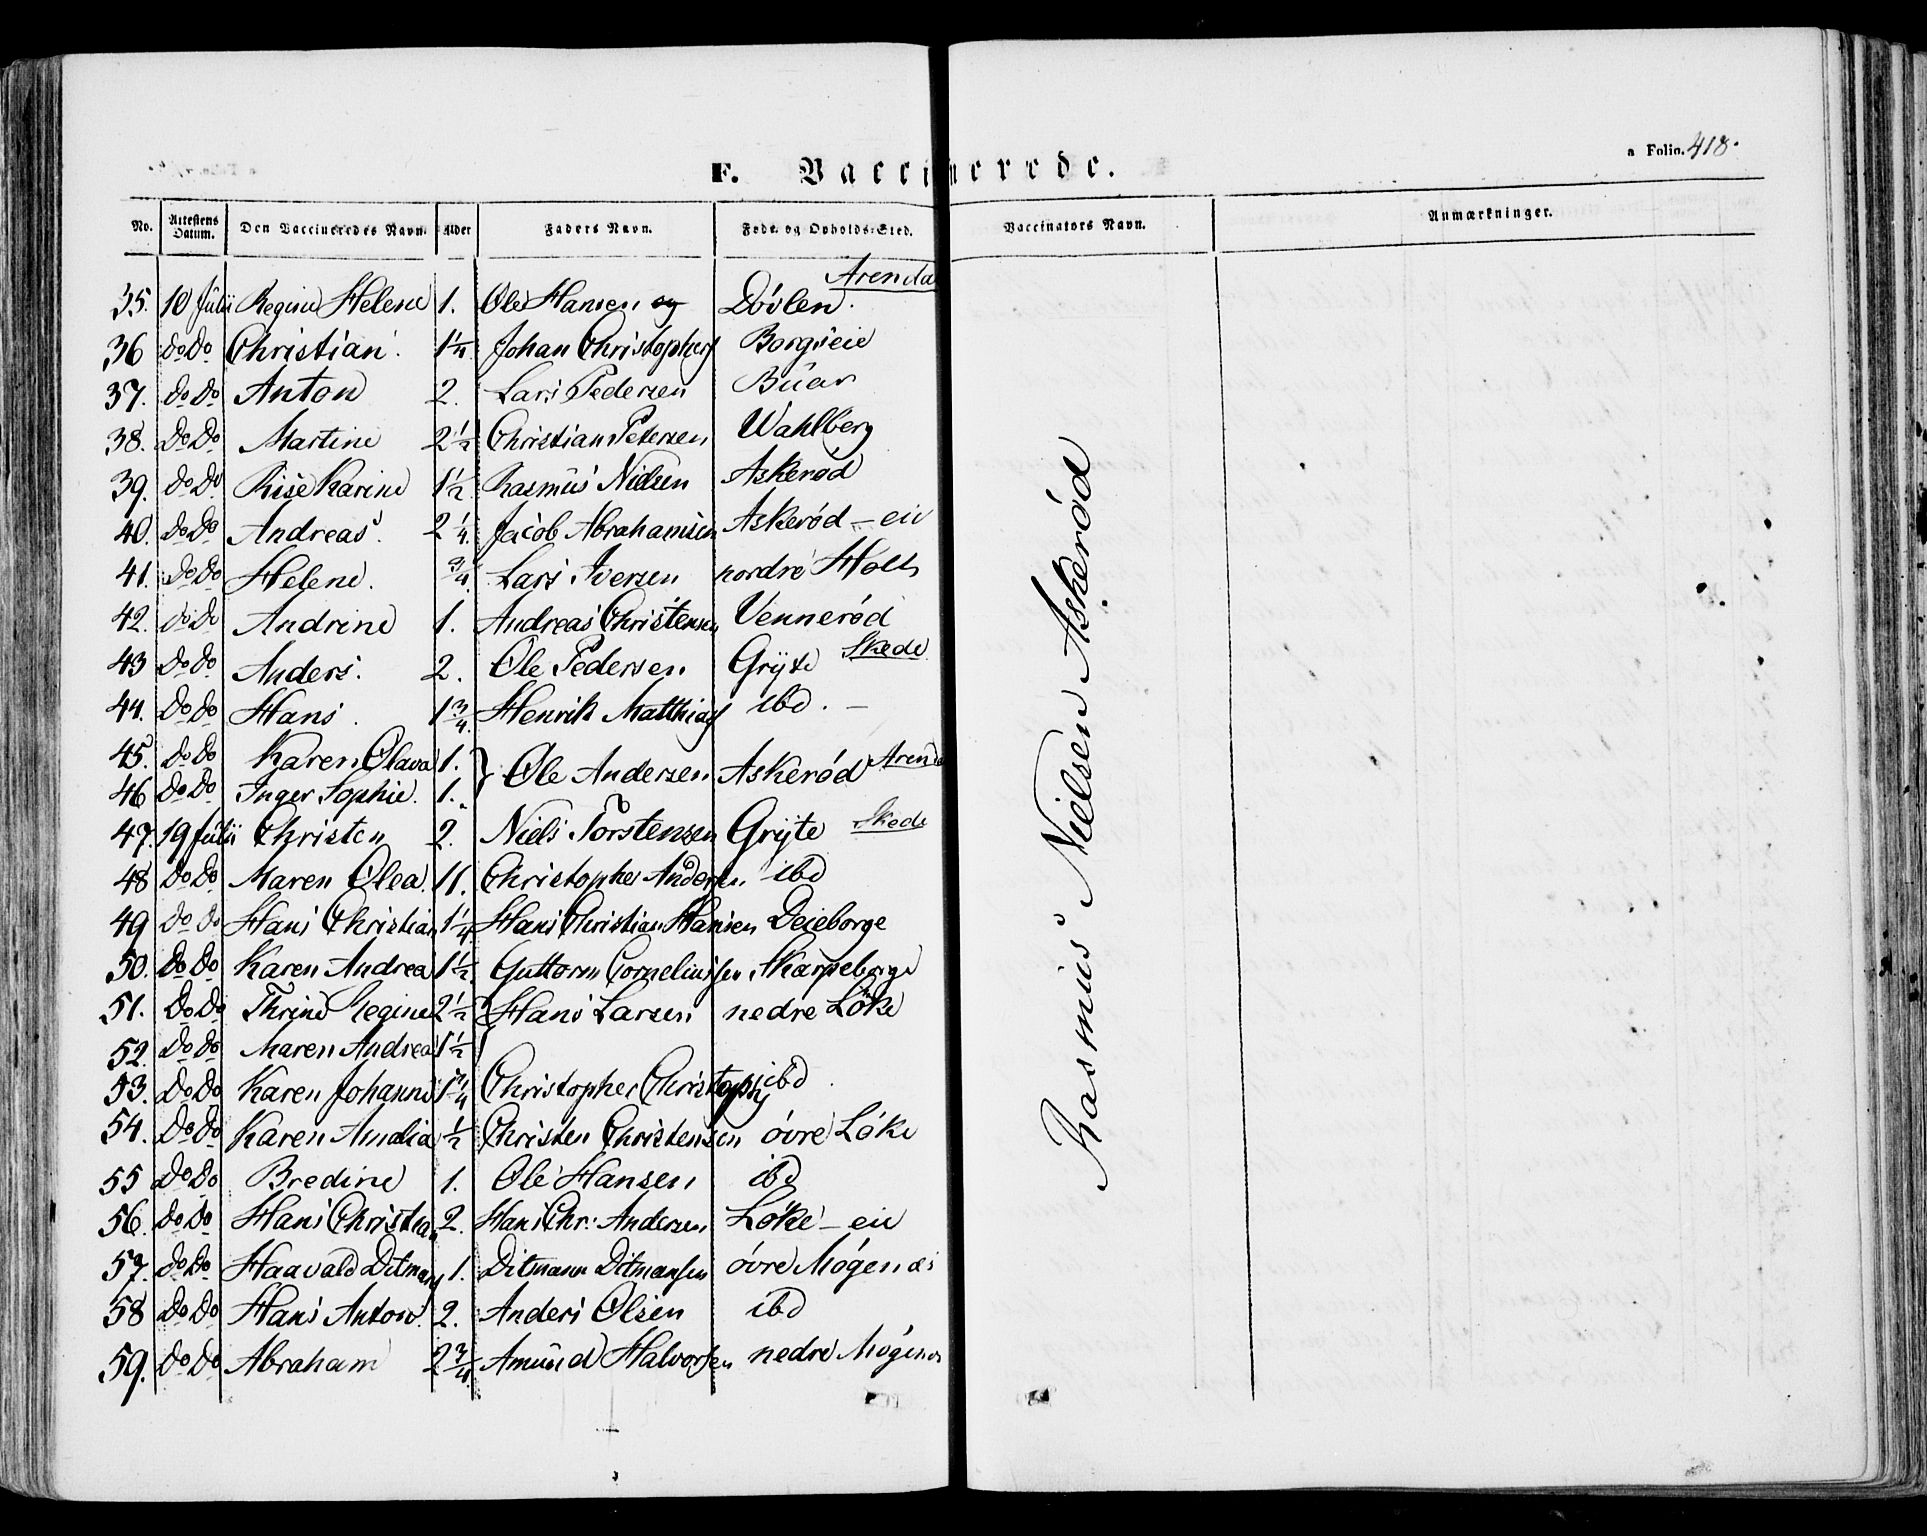 a Folio. 418.
F. Vaccinerede.
No. Attestens Datum. Den Vaccineredes Navn. Alder Faders Navn. Føde- og Opholds-Sted. Vaccinators Navn. Anmærkninger.
Arenda
35. 10 Julii Regine Helene 1. Ole Hansen Døvlen.
36 do Do Christian. 1 1/4. Johan Christophers Borgseie
37. do Do Anton 2. Lars Pedersen Buar
38. Do Do Martine 2 1/2 Christian Petersen Wahlberg
39. do Do Karine 1 1/2. Rasmus Nielsen Askerød
40. Do Do Andreas. 2 1/4. Jacob Abrahamsen Askerød - eie
41. Do Do Helene. 3/4. Lars Iversen nordre Holt
42. do Do Andrine 1. Andreas Christensen Vennerød
43 Do do Anders. 2. Ole Pedersen Gryte Skede
44. Do Do Hans. 1 3/4. Henrik Matthias ibd. -
45. Do Do Karen Olava 1. } Ole Andersen Askerød Arend
46 Do Do Inger Sophie. 1.
47. 19 Julii Christen 2. Niels Torstensen Gryte Skede
48 Do Do Maren Olea. 11. Christopher Andersen ibd
49 Do Do Hans Christian 1 1/4 Hans Christian Hansen Deieborge
50. Do Do Karen Andrea 1 1/2 Guttorm Corneliussen Skarpeborge
51. Do Do Thrine Regine 2 1/2 } Hans Larsen nedre Løke
52. Do do Maren Andrea 1 1/2
53. Do Do Karen Johanne 1 3/4 Christopher Christophs ibd.
54. Do do Karen Amalia 1/2 Christen Christensen øvre Løke
55 Do Do Bredine 1. Ole Hansen ibd
56. do do Hans Christian 2. Hans Chr: Andersen Løke - eie
57. Do Do Haavald Ditmans 1. Ditmann Ditmansen øvre Møgenæs
58 Do Do Hans Anton. 2. Anders Olsen ibd
59. Do Do Abraham 2 3/4. Amund Halvorsen nedre Møgenæs
Rasmus Nielsen Askerød